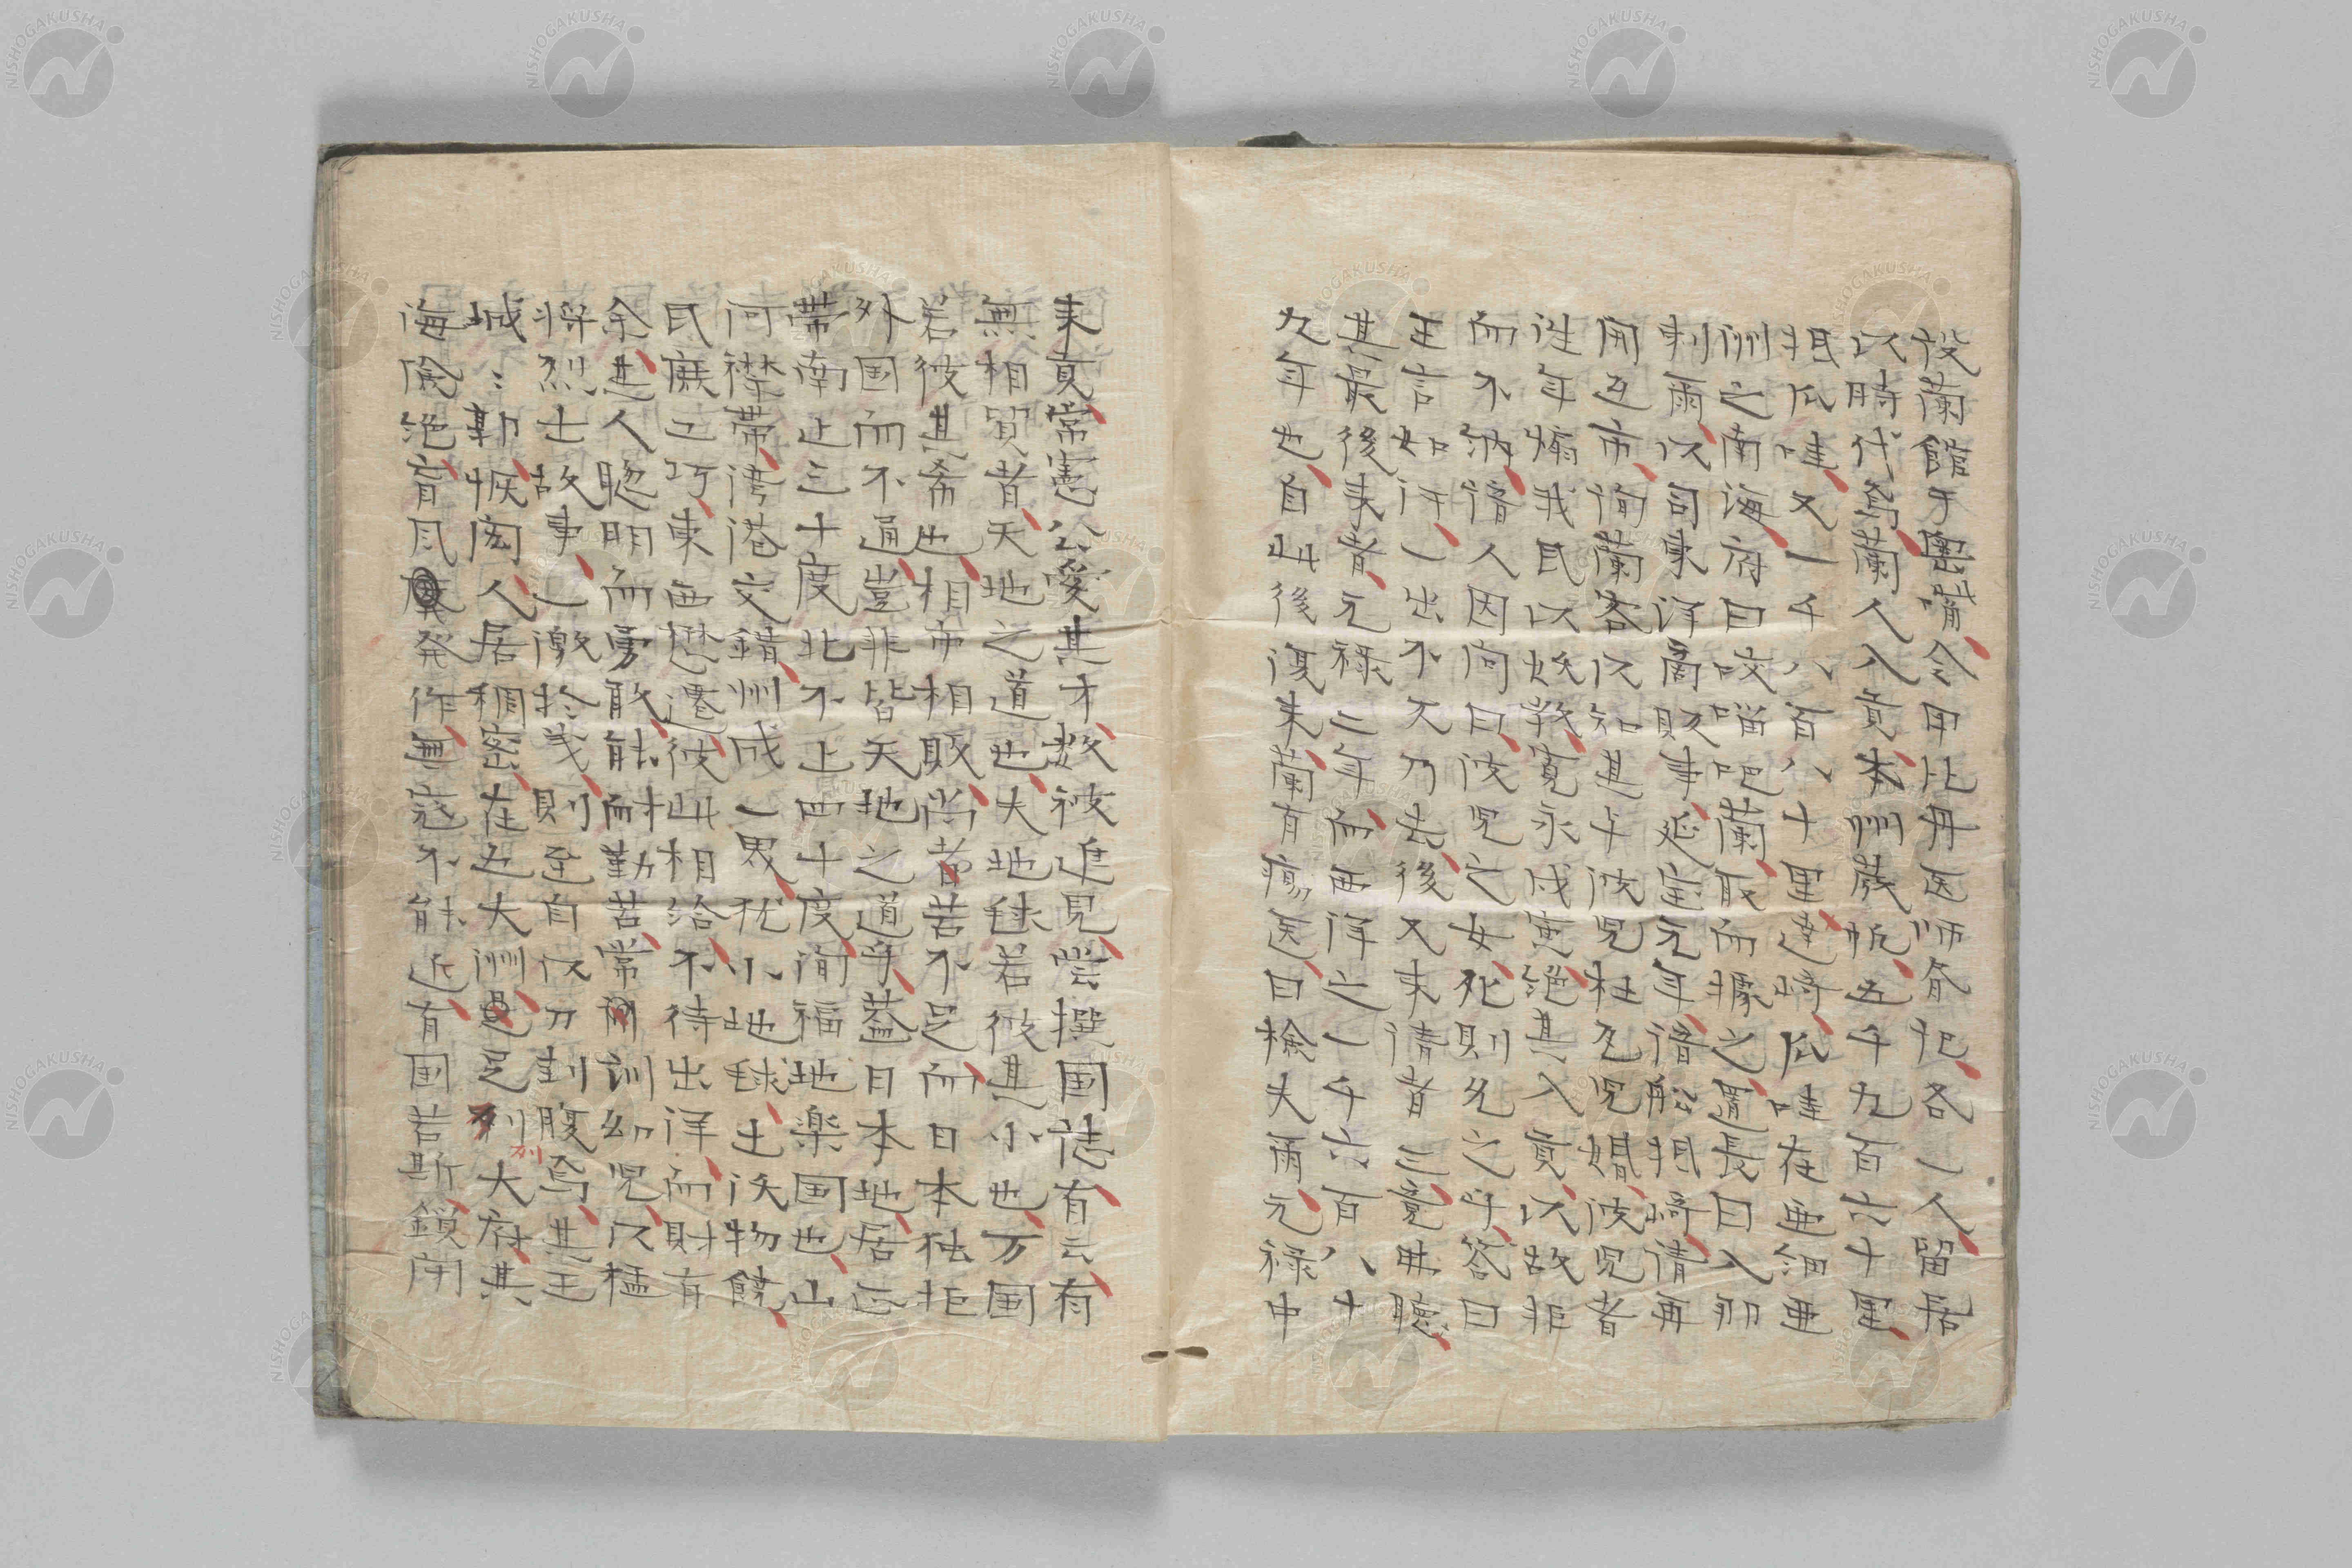 設蘭館于墺嘴令甲比丹医師斉祀各一人留居
以時代焉蘭人入貢本洲歳帆五千九百六十里
抵瓜哇又一千八百八十里達崎瓜哇在亜細亜
洲之南海府曰咬𠺕吧蘭取而據之置長曰入那
剌爾以司東洋商販事延宝元年諳船抵崎請再
開互市伺蘭客以知其与波児杜瓦児婚波児者
往年煽我民以妖教寛永戊寅絶其入貢以故拒
而不納諳人因問曰波児之女死則允之乎答曰
王言如汗一出不反乃去後又来請者三竟毋聴
其最後来者元禄二年而西洋之一千六百八十
九年也自此後復来蘭有瘍医曰檢夫爾元禄中
来貢常憲公愛其才数被進見嘗撰国誌有云有
無相貿者天地之道也夫地毬若彼其小也万国
若彼其希也相市相販尚苦不足而日本独拒
外国而不通豈非皆天地之道乎蓋日本地居正
帯南止三十度北不上四十度間福地楽国也山
河襟帯湾港交錯州成一界犹小地毬土沃物饒
民庶工巧東西懋遷彼此相給不待出洋而財有
余其人聡明而勇敢能材而勤苦常訓幼児以猛
将烈士故事一激於義則至自以刀刲腹焉其王
城〻勤恢闳人居稠密在五大洲足列大府其
海風絶盲風発作無寇不能近有国若斯鎖閉
NISHOGAKUSHA